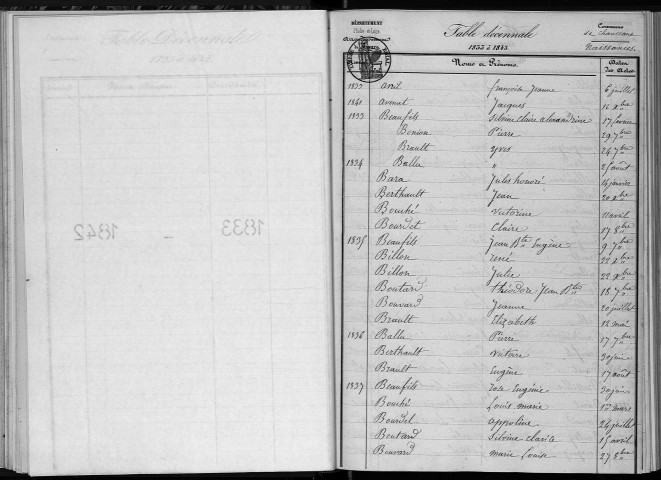 1833
—
1842
DÉPARTEMENT
Table décennale
1833 à 1843.
Commune
Naissances.
Noms et Prénoms.
Dates
des Actes
1833 Avril françoise Jeanne 6 juillet
1840 Jacques 16 xbre
1833 Beaufils Silvine Claire alexandrine 17 fevrier
Bonion Pierre 29 7bre
Brault yves 24 7bre
1834 Ballu " 25 août
Bara Jules honoré 14 janvier
Berthault Jean 20 xbre
Bouché victorine 11 avril
Bourdet Claire 17 8bre
1835 Beaufils Jean Bte Eugène 9 7bre
Billon rené 22 xbre
Billon Julie 22 xbre
Boutard théodore Jean Bte 18 7bre
Bouvard Jeanne 20 juillet
Brault Elizabeth 12 mai
1836 Ballu Pierre 17 7bre
Berthault victoire 30 juin
Brault Eugène 17 août
1837 Beaufils rose Eugénie 30 juin
Bouché Louis marie 1er mars
Bourdet appoline 24 juillet
Boutard Silvine clarice 15 avril
Bouvard marie Louise 27 8bre